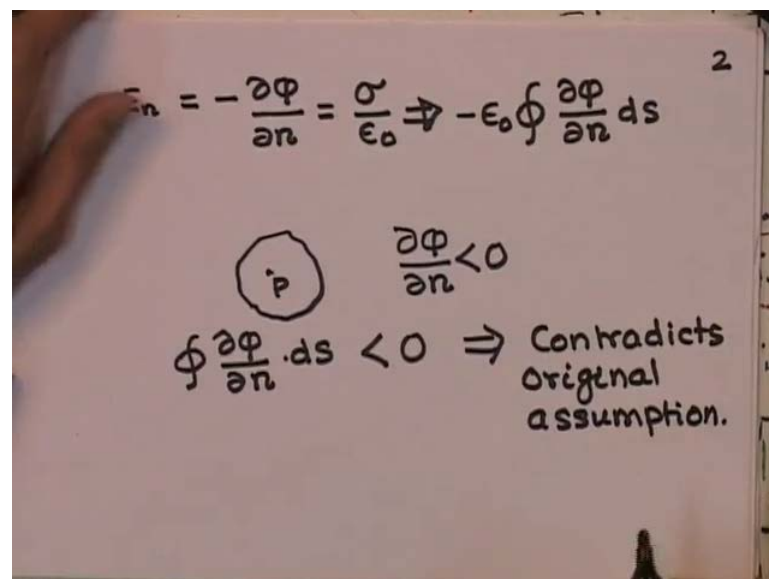 2
E_n = -∂φ/∂n = σ/ϵ₀ ⇒ -ϵ₀ ∮ ∂φ/∂n ds
P
∂φ/∂n < 0
∮ ∂φ/∂n .ds < 0 ⇒ Contradicts
original
assumption.